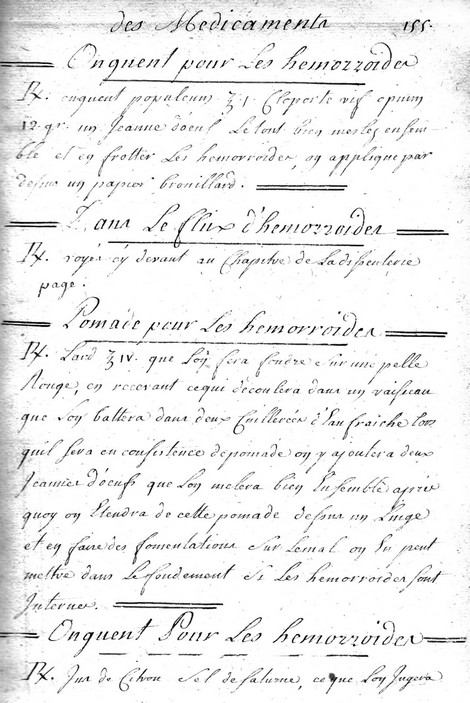 des Medicaments 155.
Onguent pour Les hemorroides
℞. onguent populeum ʒ i Cloporte vif opium
12 gr. un Jeaune d'oeuf Le tout bien meslés ensem-
ble et en frotter Les hemorroides, on applique par
dessus un papier brouillard.
Le flux d'hemorroides
℞. voyés cy devant au Chapitre de La dissenterie
page.
Pomade pour Les hemorroides
℞. Lard ʒ iv. que Lon fera fondre sur une pelle
Rouge, en recevant ce qui decoulera dans un vaisseau
que Lon battera dans deux Cuillerées d'Eau fraiche lors
quil sera en consistence de pomade on y ajoutera deux
Jeaunes d'oeufs que Lon melera bien Ensemble aprés
quoy on Etendra de cette pomade dessus un Linge
et en faire des fomentations sur Le mal on En peut
mettre dans Le fondement si Les hemorroides sont
Internes.
Onguent Pour Les hemorroides
℞. Jus de Citron Sel de saturne, ce que Lon Jugera